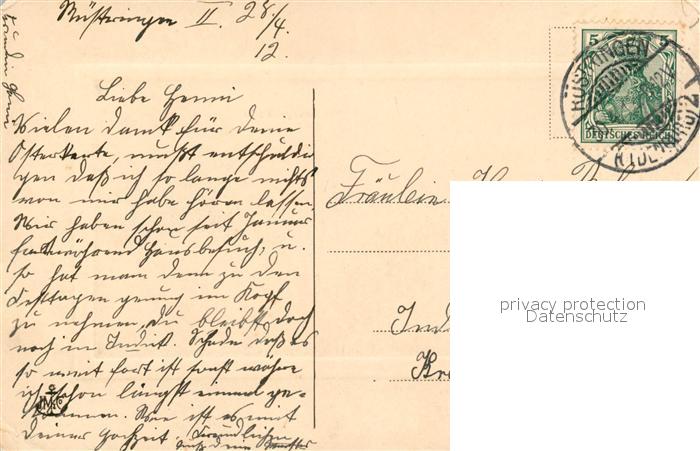 Rüstringen II. 28/4.
12.
Liebe Henni
Vielen dank für deine
Osterkarte, mußt entschuldi
gen daß ich so lange nichts
von mir habe hören lassen.
Wir haben schon seit Januar
fortwährend Hausbesuch, u.
so hat man denn zu den
Festtagen genug im Kopf
zu nehmen, du bleibst doch
noch in Schade daß es
so weit fort ist sonst wäre
ich schon längst einmal ge-
kommen. Wie ist es mit
deiner Hochzeit. Freundlichen
Gruß deine
Fräulein
Kr
5 5
DEUTSCHES REICH
RÜSTRINGEN
(OLDENBURG) 2
privacy protection
Datenschutz